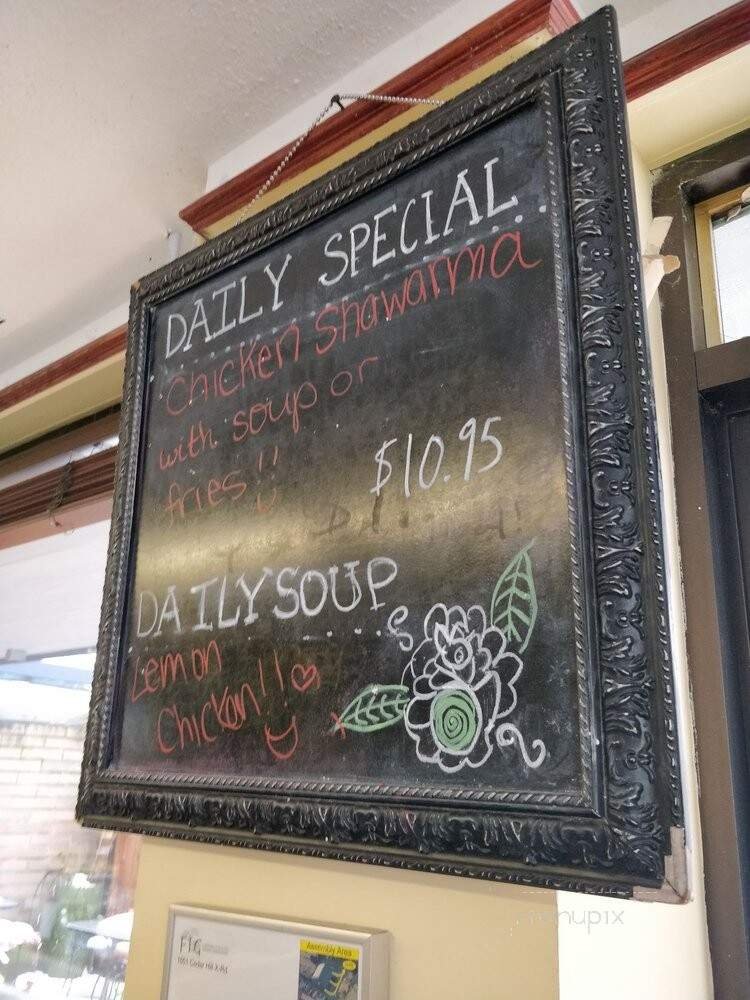 DAILY SPECIAL
Chicken Shawarma
with soup or
fries!!
$10.95
DAILY SOUP
Lemon
Chicken!!
FIG
Assembly Area
1551 Cedar Hill X-Rd
menupix